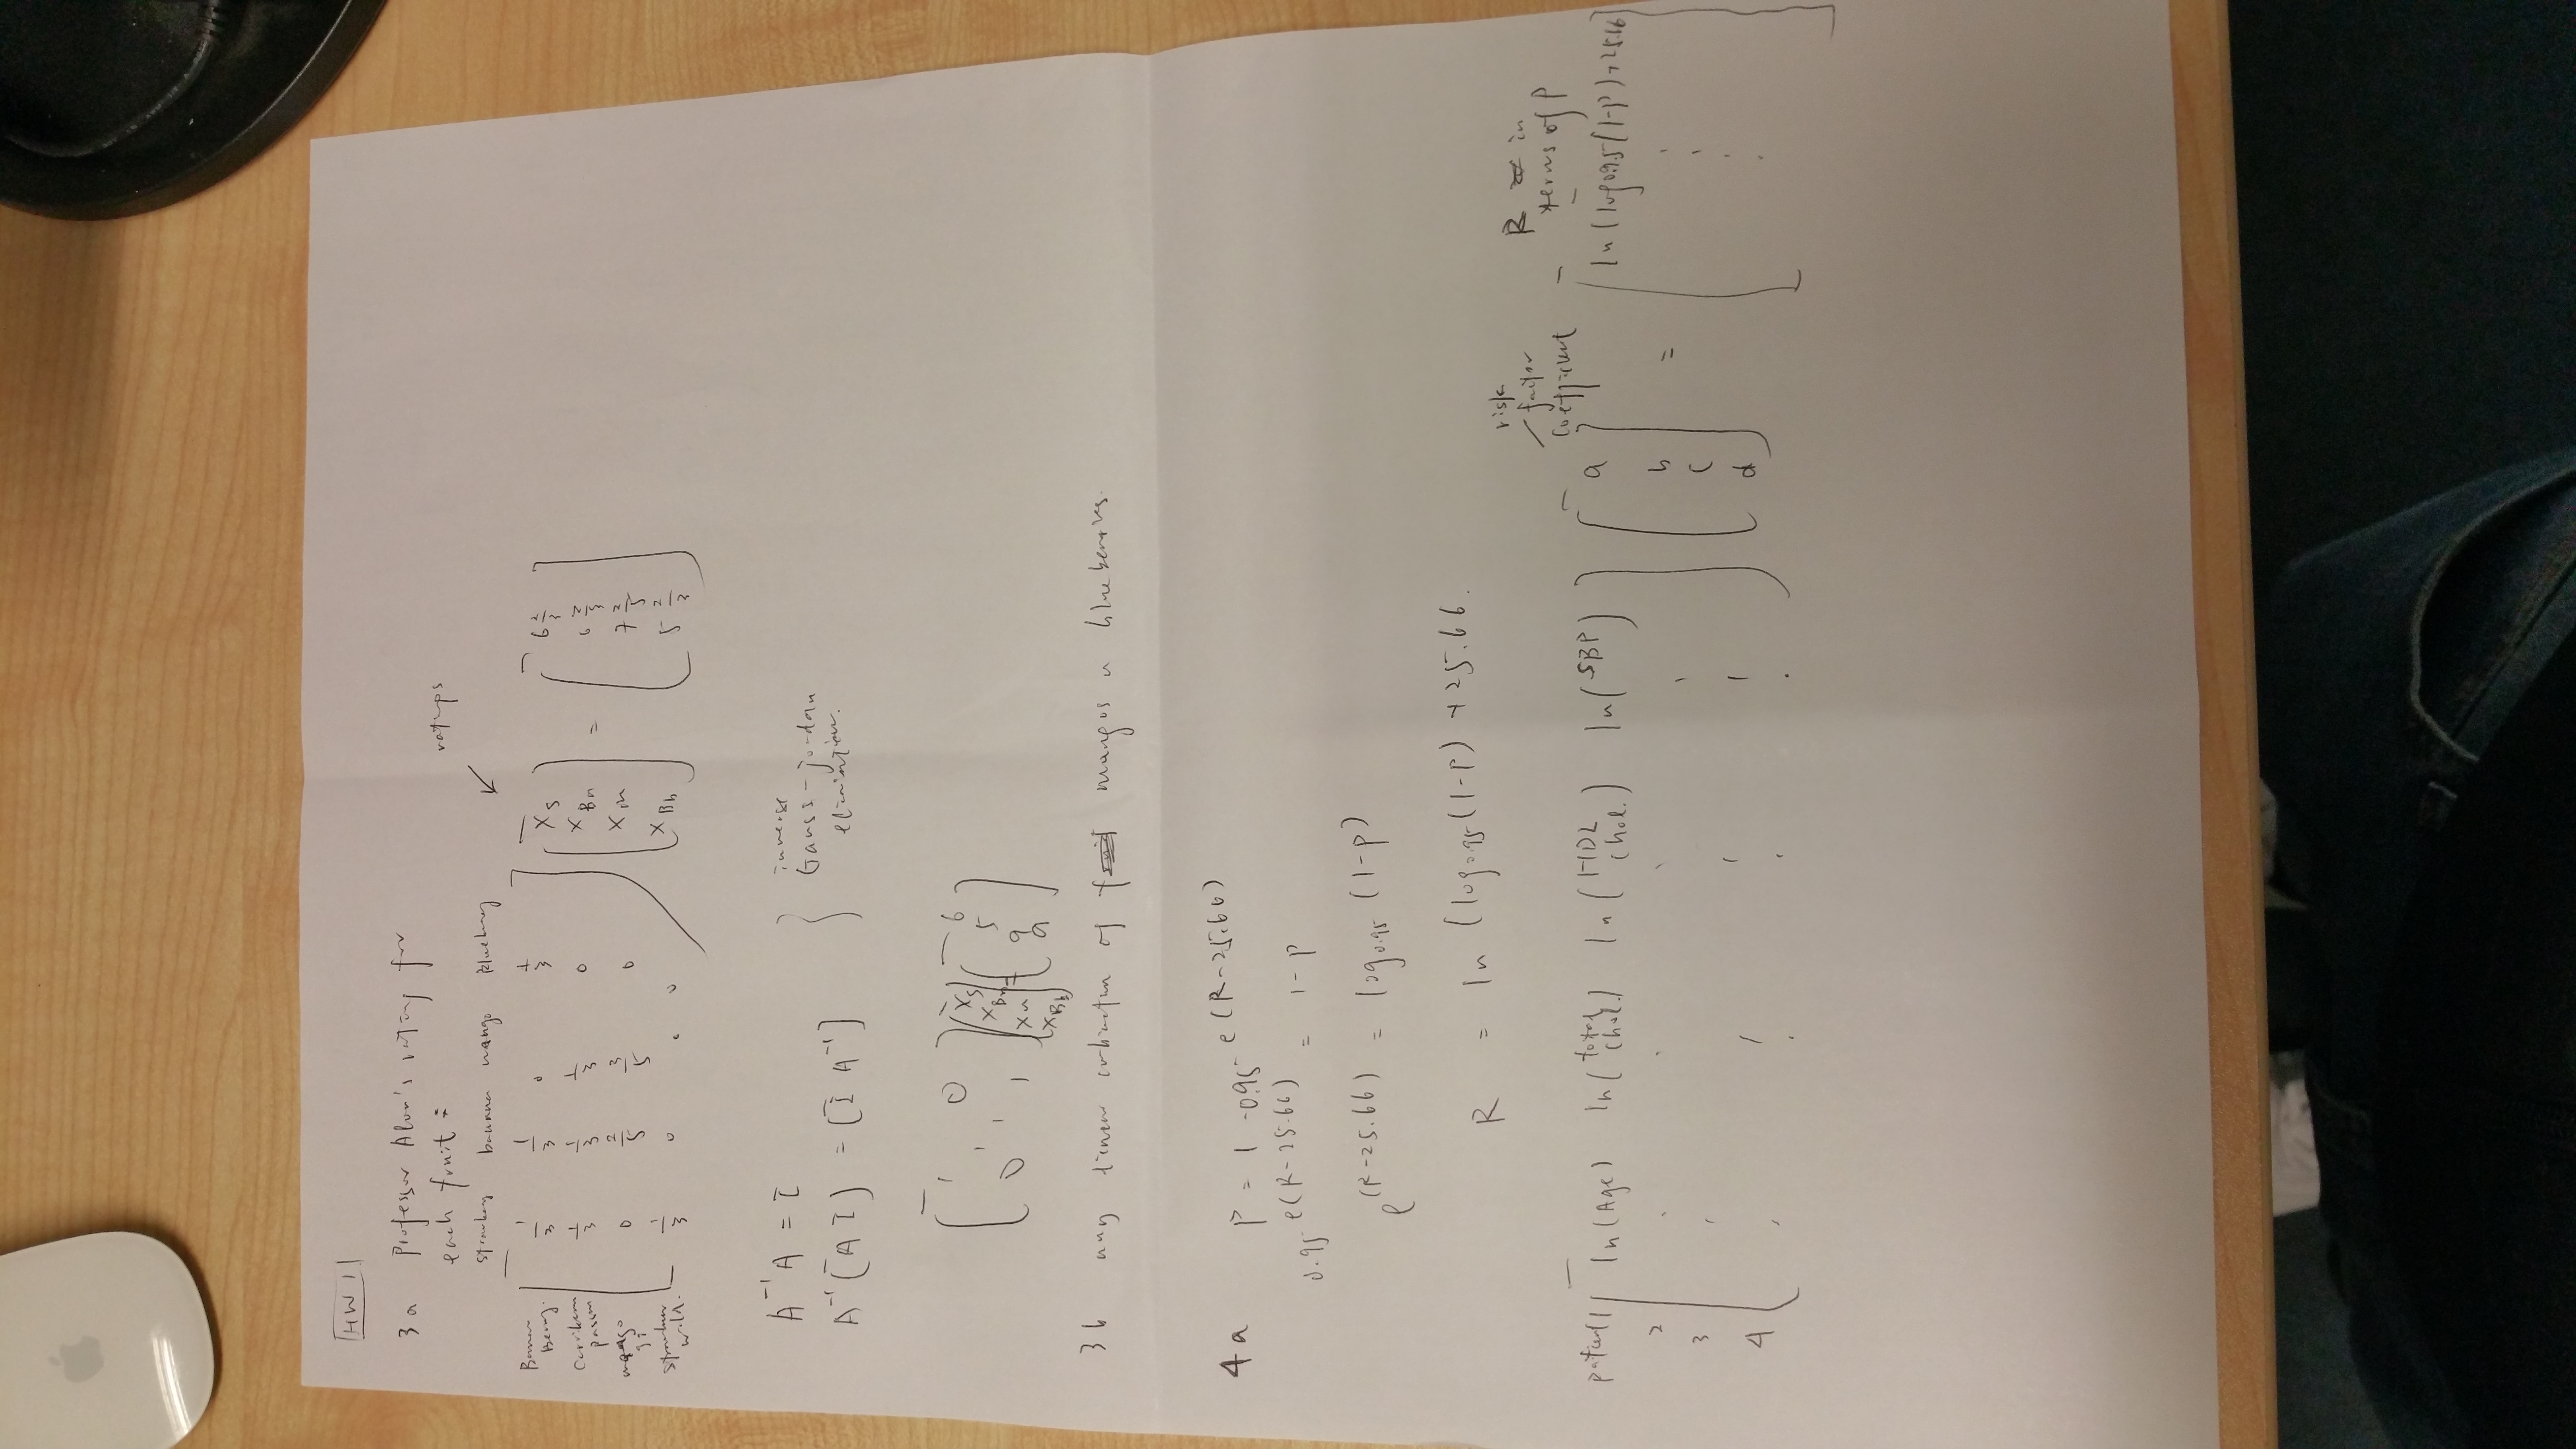 HW 1
3a Professor Alon's rating for
each fruit :
ratings
strawberry banana mango blueberry
1/3 1/3 0 1/3
1/3 1/3 1/3 0
mango 0 2/5 3/5 0
1/3 0 . 0
X_S X_Bn X_m X_Bb = 6 2/3 6 2/3 7 2/5 5 2/3
A⁻¹ A = I
A⁻¹ [A I] = [I A⁻¹]
inverse
Gauss-jordan
elimination.
1 0 0 1 1 1 X_S X_Bn X_m X_Bb = 6 5 9 9
3b any linear of mangos blueberries.
4a P = 1 - 0.95^e(R-25.66)
0.95^e(R-25.66) = 1-P
e^(R-25.66) = log_0.95 (1-P)
R = ln (log_0.95 (1-P) + 25.66.
risk
factor
coefficient
R in
terms of P
patient 1 ln(Age) ln(total chol.) ln(HDL chol.) ln(SBP) a ln(log_0.95(1-P)+25.66
2 b =
3 c
4 d